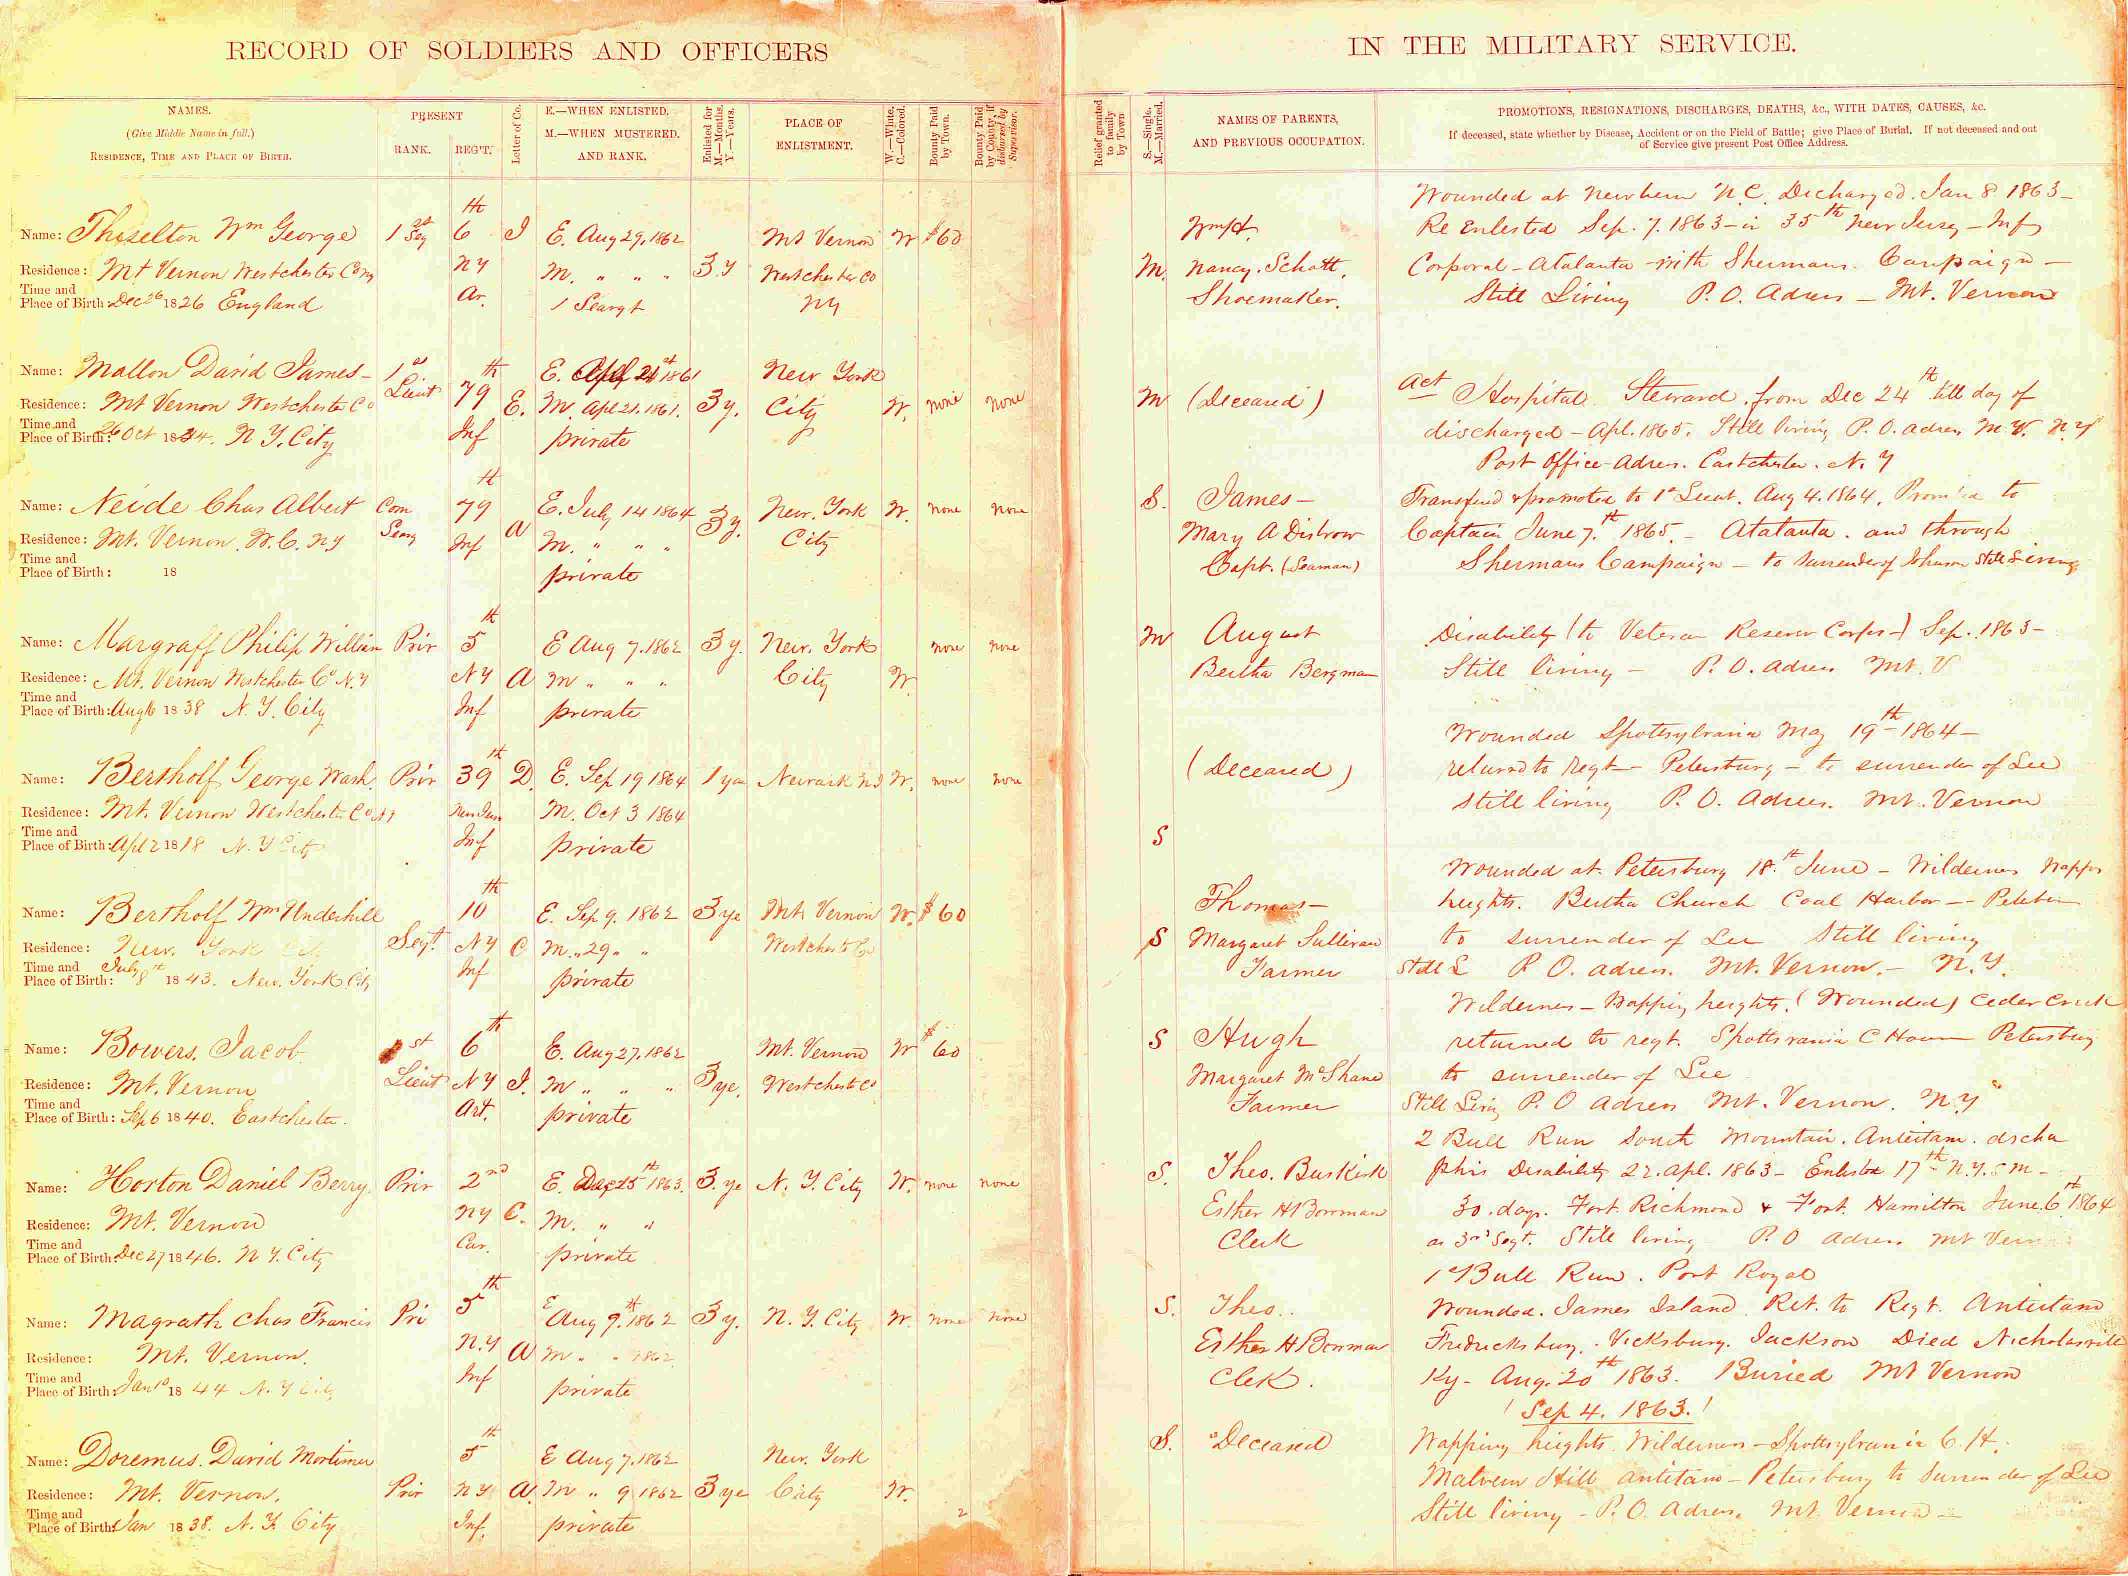 RECORD OF SOLDIERS AND OFFICERS
NAMES.
(Give Middle Name in full.)
RESIDENCE, TIME AND PLACE OF BIRTH.
PRESENT
RANK. REG'T.
Letter of Co.
E.—WHEN ENLISTED.
M.—WHEN MUSTERED.
AND RANK.
Enlisted for
M.—Months.
Y.—Years.
PLACE OF
ENLISTMENT.
W.—White.
C.—Colored.
Bounty Paid
by Town.
Bounty Paid
by County, if
disbursed by
Supervisor.
th
Name: Thiselton Wm George 1st Seg 6 I E. Aug 29, 1862 Mt Vernon W $60
Residence: Mt Vernon Westchester Co NY NY M. " " " 3 y Westchester Co
Time and
Place of Birth: Dec 26 1826 England Ar. 1 Seargt NY
Name: Mallon David James - 1st th E. Apl 21st 1861 New York
Residence: Mt Vernon Westchester Co Lieut 79 E. M. Apl 21. 1861. 3 y. City W. none none
Time and
Place of Birth: 26 Oct 1834. N Y. City Inf private
th
Name: Neide Chas Albert Com 79 E. July 14 1864 New. York W. none none
Residence: Mt. Vernon. W. C. NY Searg Inf A M. " " " 3 y. City
Time and
Place of Birth: 18 private
th
Name: Margraff Philip William Priv 5 E Aug 7. 1862 3 y. New. York none none
Residence: Mt. Vernon Westchester Co N. Y NY A M " " " City W.
Time and
Place of Birth: Aug 16 1838 N. Y. City Inf private
Name: Bertholf George Wash. Priv 39th D. E. Sep 19 1864 1 year Newark NJ W. none none
Residence: Mt. Vernon Westchester Co NY New Jers M. Oct 3 1864
Time and
Place of Birth: Apl 2 1818 N. Y City Inf private
th
Name: Bertholf Wm Underhill 10 E. Sep 9. 1862 3 ye Mt Vernon W. $60
Residence: New. York City Segt. NY C M. " 29 " " Westchester Co
Time and
Place of Birth: July 8th 1843. New. York City Inf private
Name: Bowers. Jacob. 1st 6th E. Aug 27. 1862 Mt. Vernon W $60
Residence: Mt. Vernon Lieut NY I. M " " " 3 ye. Westchest Co
Time and
Place of Birth: Sep 6 1840. Eastchester. Art. private
Name: Horton Daniel Berry. Priv 2nd E. Dec 25th 1863. 3. ye N. Y. City W. none none
Residence: Mt. Vernon NY C. M. " "
Time and
Place of Birth: Dec 27 1846. N Y. City Cav. private
th
Name: Magrath Chas Francis Pri 5 E Aug 9.th 1862 3 y. N. Y. City W. none none
Residence: Mt. Vernon. N.Y A M " " 1862
Time and
Place of Birth: Jan 10 1844 N. Y City Inf private
th
Name: Doremus. David Mortimer 5 E Aug 7. 1862 New. York
Residence: Mt. Vernon. Priv NY A. M " 9 1862 3 ye City W.
Time and
Place of Birth: Jan 1838. N. Y. City Inf. private
2
IN THE MILITARY SERVICE.
Relief granted
to family
by Town
S.—Single.
M.—Married.
NAMES OF PARENTS,
AND PREVIOUS OCCUPATION.
PROMOTIONS, RESIGNATIONS, DISCHARGES, DEATHS, &c., WITH DATES, CAUSES, &c.
If deceased, state whether by Disease, Accident or on the Field of Battle; give Place of Burial. If not deceased and out
of Service give present Post Office Address.
Wounded at Newbern N. C. Discharged. Jan 8 1863 -
Wm H. Re Enlisted Sep. 7. 1863 - in 35th New Jersey - Inf
M. Nancy. Schott. Corporal - Atalanta - with Shermans. Campaign -
Shoemaker. Still Living P. O. Adress - Mt. Vernon
M (Deceased) Act Hospital Steward. from Dec 24th till day of
discharged - Apl. 1865. Still living P. O. adress M. V. N.Y
Post Office - Adress. Eastchester. N. Y
S. James - Transferd & promoted to 1st Lieut. Aug 4. 1864. Promoted to
Mary A Disbrow Captain June 7.th 1865. - Atalanta. and through
Capt. (Seaman) Shermans Campaign - to surrender of Johnson Still Living
M August Disability (to Veteran Reserve Corps -) Sep. 1863 -
Bertha Bergman Still living - P. O. adress Mt. V
Wounded Spottsylvania May 19th 1864 -
(Deceased) returned to Regt - Petersburg - to surrender of Lee
still living P. O. Adress. Mt. Vernon
S
Wounded at Petersburg 18.th June - Wilderness Wapps
Thomas - heights. Bertha Church Coal Harbor - Petebur
S Margaret Sullivan to surrender of Lee Still living
Farmer Still L P. O. adress. Mt. Vernon. - N.Y.
Wilderness - Wapping heights. (Wounded) Ceder Creek
S Hugh returned to regt. Spottsvania C House Petersburg
Margaret McShane to surrender of Lee
Farmer Still Living P. O Adress Mt. Vernon. N.Y
2 Bull Run South Mountain. Antietam. discha
S. Theo. Buskirk phis Disability 22. apl. 1863 - Enlisted 17th N.Y.S M -
Esther H Bowman 30. days. Fort Richmond & Fort. Hamilton June. 6th 1864
Clerk as 3rd Segt. Still living P. O adress Mt Vern
1st Bull Run. Port Royal
S. Theo.. Wounded. James Island. Ret. to Regt. Antietam
Esther H Bowman Fredricksburg. Vicksburg. Jackson Died Nicholasville
Clerk. Ky - Aug. 20th 1863. Buried Mt Vernon
Sep 4. 1863.
S. Deceased Wapping heights. Wilderness - Spottsylvania C. H.
Malvern Hill antitam - Petersburg to Surrender of Lee
Still living - P. O. Adress. Mt. Vernon -